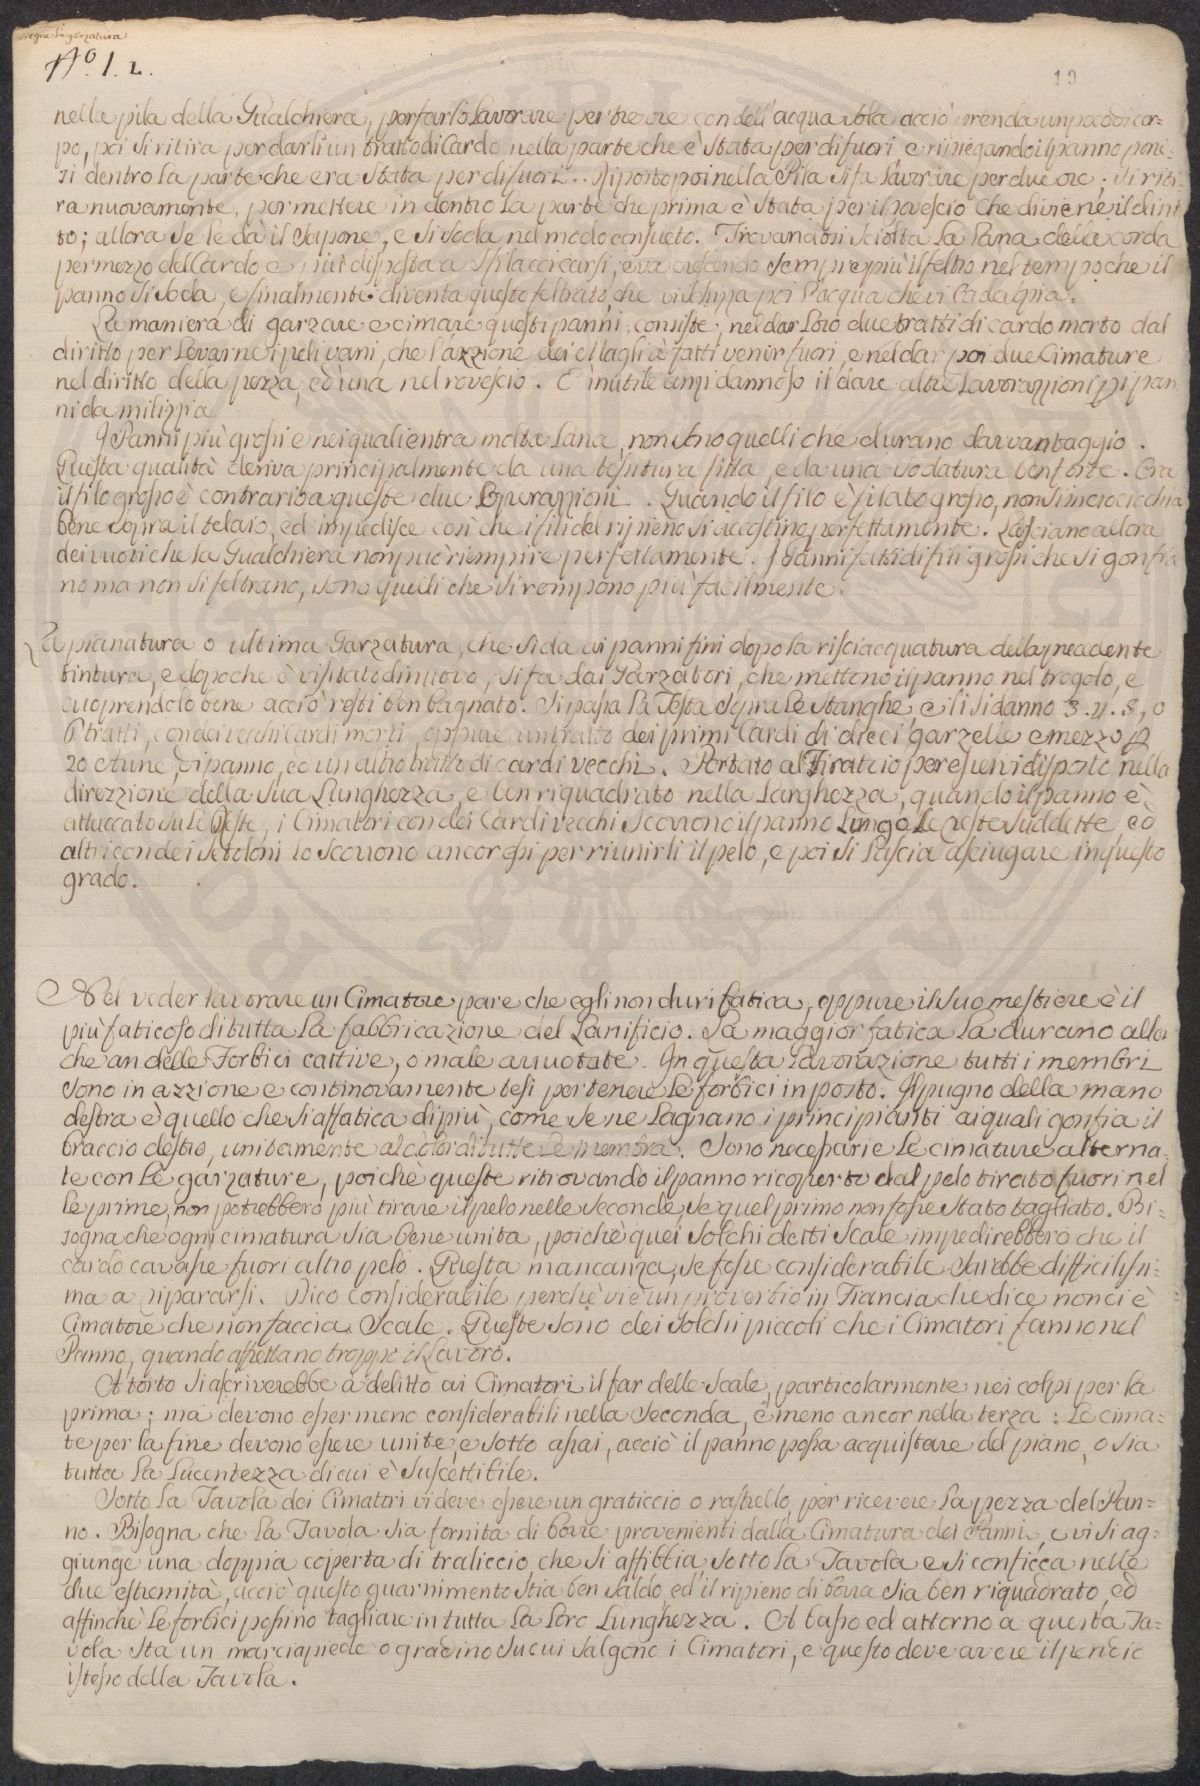 Segue la garzatura
Nº. 1. L.
19
nella pila della Gualchiera, per farlo lavorare per tre ore con dell'acqua sola acciò prenda un poco di cor=
po, poi si ritira per darli un tratto di Cardo nella parte che è stata per di fuori e ripiegando il panno pone=
si dentro la parte che era stata per di fuori. Riposto poi nella Pila si fa lavorare per due ore; si riti=
ra nuovamente, per mettere in dentro la parte che prima è stata per il rovescio che diviene il dirit
to; allora se le da il Sapone, e si soda nel modo consueto. Trovandosi sciolta la Lana della corda
per mezzo del Cardo e più disposta a sfilaccicarsi, e va crescendo sempre più il feltro nel tempo che il
panno si soda, e finalmente diventa questo feltrato che vi schizza poi l'acqua che vi cade sopra.
La maniera di garzare e cimare questi panni, consiste, nel dar loro due tratti di cardo morto dal
diritto per levarne i peli vani, che l'azzione dei à fatti venir fuori, e nel dar poi due Cimature
nel diritto della pezza, ed una nel rovescio. E' inutile anzi dannoso il dare altre lavorazzioni pi pan
ni da milizzia
I Panni più grossi e nei quali entra molta Lana, non sono quelli che durano davvantaggio.
Questa qualità deriva principalmente da una tessitura fitta, e da una sodatura ben forte. Ora
il filo grosso è contrario a queste due Operazzioni. Quando il filo è filato grosso, non s'incrocicchia
bene sopra il telaio, ed impedisce così che i fili del ripieno si accostino perfettamente. Lasciano allora
dei vuoti che la Gualchiera non può riempire perfettamente. I panni fatti di fili grossi che si gonfia
no ma non si feltrano, sono quelli che si rompono più facilmente.
La pianatura o ultima Garzatura, che si da ai panni fini dopo la risciacquatura della precedente
tintura, e dopo che è visitato di nuovo, si fa dai Garzatori, che mettono il panno nel trogolo, e
cuoprendolo bene acciò resti ben bagnato. Si passa la Testa sopra le Stanghe, e li si danno 3. 4. 5, o
6 tratti, con dei vecchi Cardi morti, oppure un tratto dei primi Cardi di dieci garzelle e mezzo p
20 Aune, di panno, ed un altro tratto di cardi vecchi. Portato al Tiratoio per esservi disposto nella
direzzione della sua Lunghezza, e ben riquadrato nella Larghezza, quando il panno è
attaccato su le Teste, i Cimatori con dei Cardi vecchi scorrono il panno lungo le teste suddette, ed
altri con dei Setoloni lo scorrono ancor essi per riunirli il pelo, e poi si lascia asciugare in questo
grado.
Nel veder lavorare un Cimatore pare che egli non duri fatica, oppure il suo mestiere è il
più faticoso di tutta la fabbricazione del Lanificio. La maggior fatica la durano allor
che an delle Forbici cattive, o male arruotate. In questa lavorazione tutti i membri
sono in azzione e continovamente tesi per tenere le forbici in posto. Il pugno della mano
destra è quello che si affatica di più, come se ne lagnano i principianti ai quali gonfia il
braccio destro, unitamente al di tutte le membra. Sono necessarie le cimature alterna=
te con le garzature, poichè queste ritrovando il panno ricoperto dal pelo tirato fuori nel
le prime, non potrebbero più tirare il pelo nelle seconde, se quel primo non fosse stato tagliato. Bi=
sogna che ogni cimatura sia bene unita, poichè quei solchi detti Scale impedirebbero che il
cardo cavasse fuori altro pelo. Questa mancanza, se fosse considerabile sarebbe difficilissi=
ma a ripararsi. Dico considerabile perchè vi è un proverbio in Francia che dice non ci è
Cimatore che non faccia Scale. Queste sono dei solchi piccoli che i Cimatori fanno nel
Panno, quando affrettano troppo il lavoro.
A torto si ascriverebbe a delitto ai Cimatori il far delle Scale, particolarmente nei colpi per la
prima; ma devono esser meno considerabili nella seconda, e meno ancor nella terza: Le cima=
te per la fine devono essere unite, e sotto assai, acciò il panno possa acquistare del piano, o sia
tutta la Lucentezza di cui è suscettibile.
Sotto la Tavola dei Cimatori vi deve essere un graticcio o rastrello, per ricevere la pezza del Pan=
no. Bisogna che la Tavola sia fornita di borre provenienti dalla Cimatura dei Panni, e vi si ag=
giunge una doppia coperta di traliccio, che si affibbia sotto la Tavola e si conficca nelle
due estremità, acciò questo guarnimento stia ben saldo, ed il ripieno di borra sia ben riquadrato, ed
affinchè le forbici possino tagliare in tutta la loro Lunghezza. A basso ed attorno a questa Ta=
vola sta un marciapiede o gradino su cui salgono i Cimatori, e questo deve avere il pendio
istesso della Tavola.